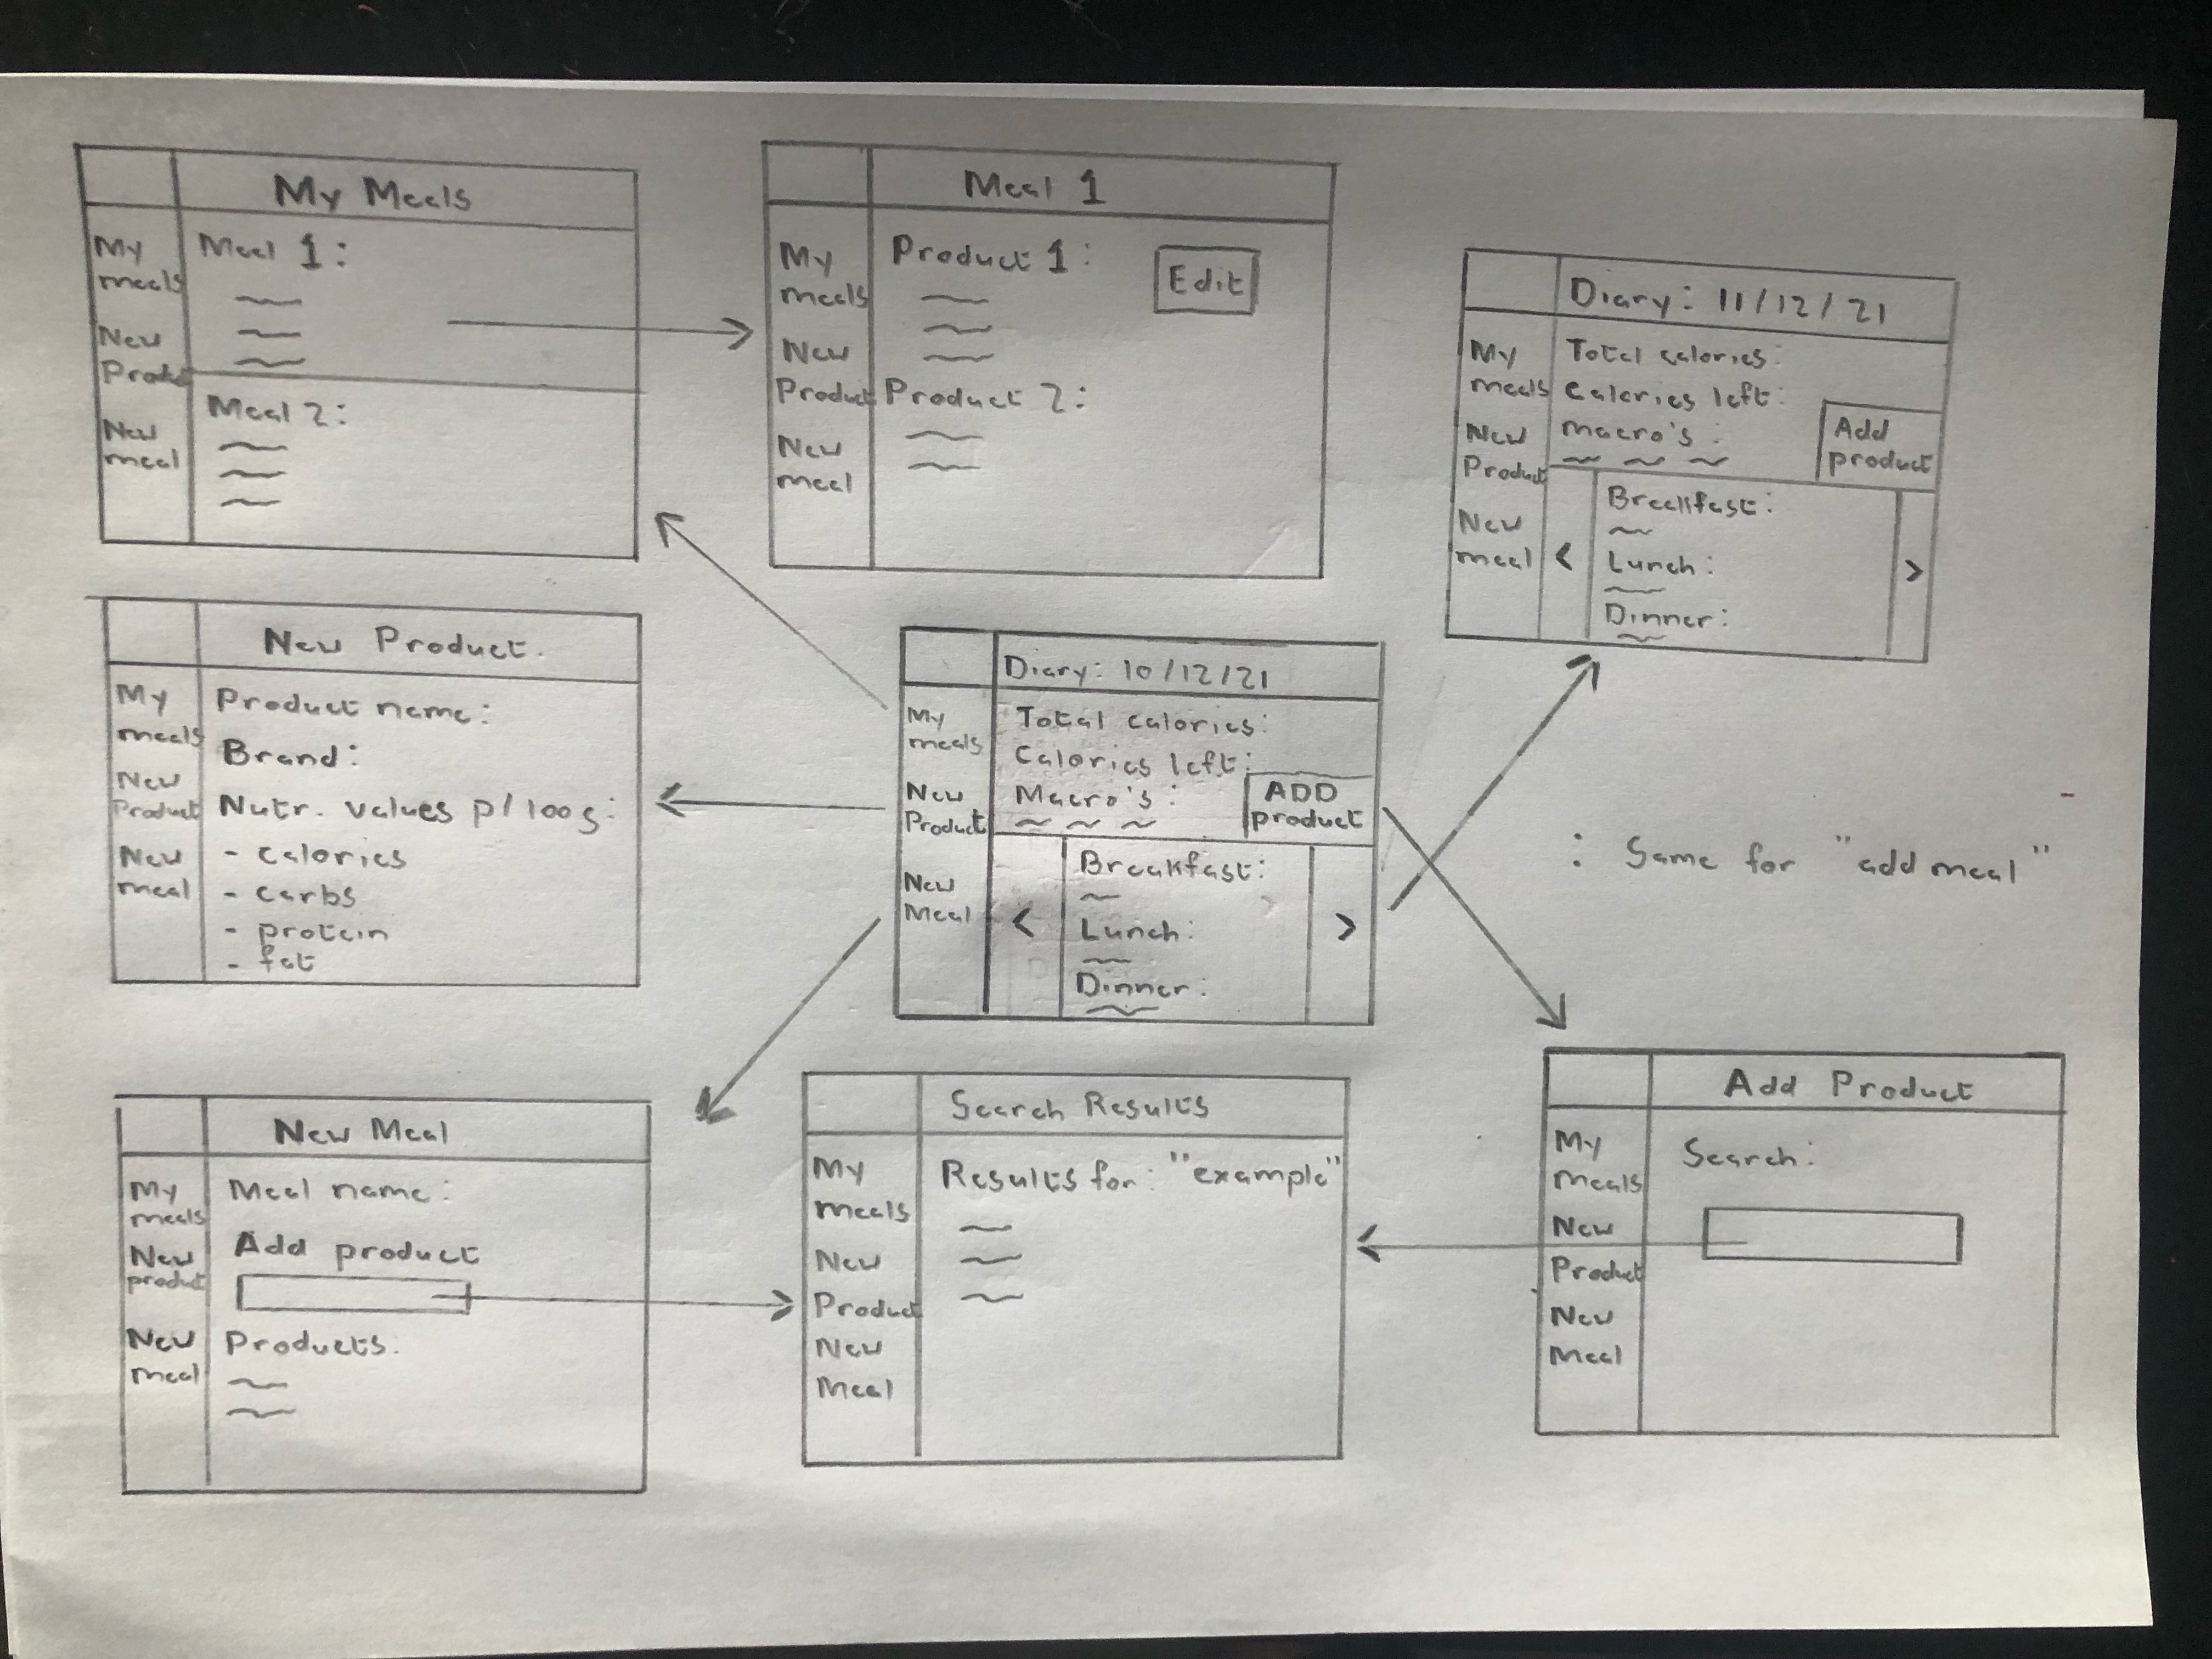 My Meals
My
meals
New
Product
New
meal
Meal 1:
Meal 2:
Meal 1
My
meals
New
Product
New
meal
Product 1:
Edit
Product 2:
Diary: 11/12/21
My
meals
New
Product
New
meal
Total calories:
Calories left:
Macro's:
Add
product
<
Breakfast:
Lunch:
Dinner:
>
New Product.
My
meals
New
Product
New
meal
Product name:
Brand:
Nutr. values p/100g:
- calories
- carbs
- protein
- fat
Diary: 10/12/21
My
meals
New
Product
New
Meal
Total calories:
Calories left:
Macro's:
ADD
product
<
Breakfast:
Lunch:
Dinner:
>
: Same for "add meal"
New Meal
My
meals
New
product
New
meal
Meal name:
Add product
Products:
Search Results
My
meals
New
Product
New
Meal
Results for: "example"
Add Product
My
meals
New
Product
New
Meal
Search: